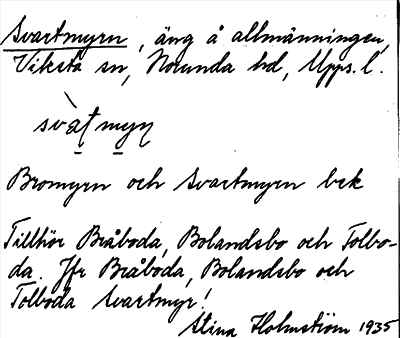 Svartmyrn, äng å allmänningen,
Viksta sn, Norunda hd, Upps. l.
svàṭmyṇ
Bromyrn och Svartmyrn bek
Tillhör Bråboda, Bolandsbo och Tolbo-
da. Jfr Bråboda, Bolandsbo och
Tolboda Svartmyr!
Stina Holmström 1935